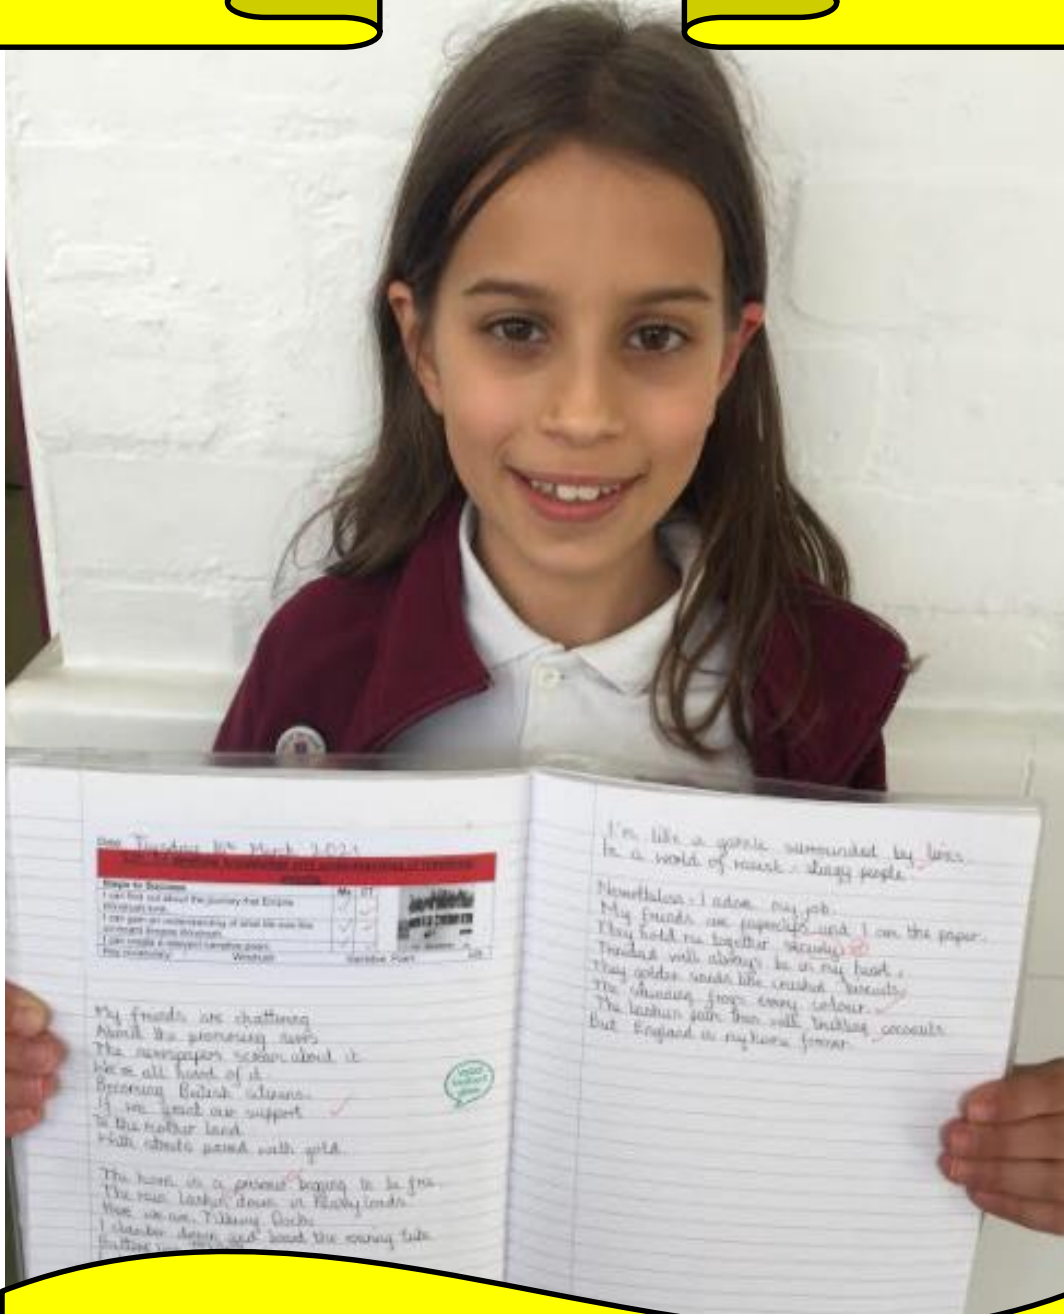 Date: Tuesday 16th March 2021
Steps to Success
Me CT
I can find out about the journey that Empire
Windrush took.
I can gain an understanding of what life was like
on board Empire Windrush.
I can create a relevant narrative poem.
Key vocabulary: Windrush Narrative Poem
My friends are chattering
About the promising news
The newspapers scream about it
We've all heard of it.
Becoming British citizens.
If we grant our support
To the mother land
With streets paved with gold.
The horn is a prisoner begging to be free.
The rain lashes down in heavy loads
Here we are, Tilbury Docks
I clamber down and board the roaring tube
I'm like a gazelle surrounded by lions
In a world of people
Nonetheless, I adore my job.
My friends are paperclips and I am the paper.
They hold me together securely
Trinidad will always be in my heart,
They golden sands like crushed biscuits
The stunning frogs every colour
The palm trees with coconuts
But England is my home forever.